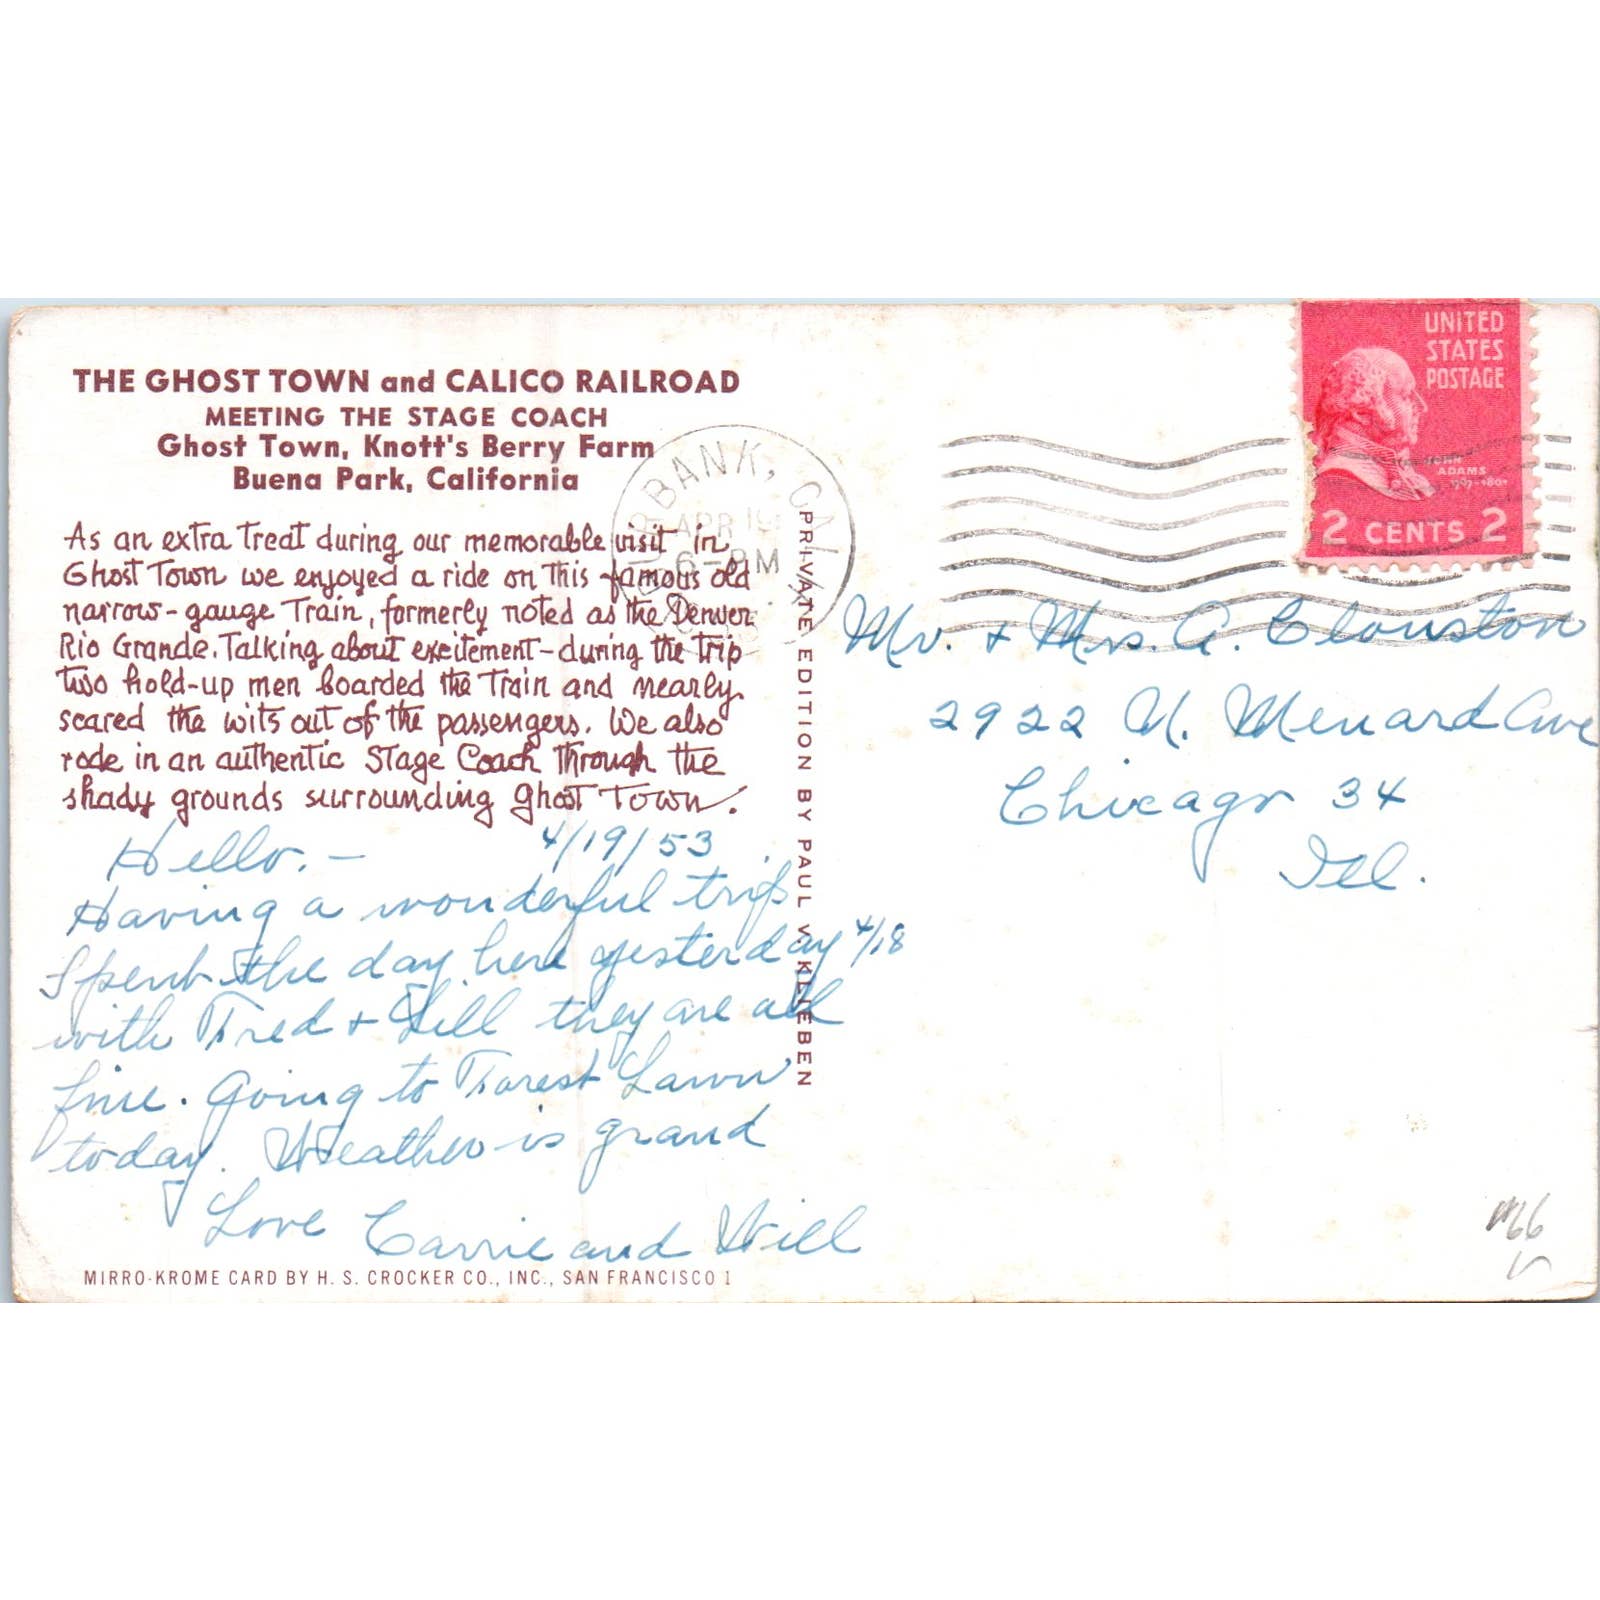 THE GHOST TOWN and CALICO RAILROAD
MEETING THE STAGE COACH
Ghost Town, Knott's Berry Farm
Buena Park, California
As an extra treat during our memorable visit in
Ghost Town we enjoyed a ride on this famous old
narrow-gauge Train, formerly noted as the Denver
Rio Grande. Talking about excitement-during the trip
two hold-up men boarded the Train and nearly
scared the wits out of the passengers. We also
rode in an authentic Stage Coach through the
shady grounds surrounding Ghost Town.
Hello. - 4/19/53
Having a wonderful trip
Spent the day here yesterday 4/18
with Fred + Lill they are all
fine. Going to Forest Lawn
today. Weather is grand
Love Carrie and Will
MIRRO-KROME CARD BY H. S. CROCKER CO., INC., SAN FRANCISCO 1
BURBANK, CALIF
APR 19
6-PM
PRIVATE EDITION BY PAUL V. KLIEBEN
UNITED
STATES
POSTAGE
JOHN
ADAMS
1797-1801
2 CENTS 2
Mr. + Mrs. A. Clouston
2922 N. Menard Ave
Chicago 34
Ill.